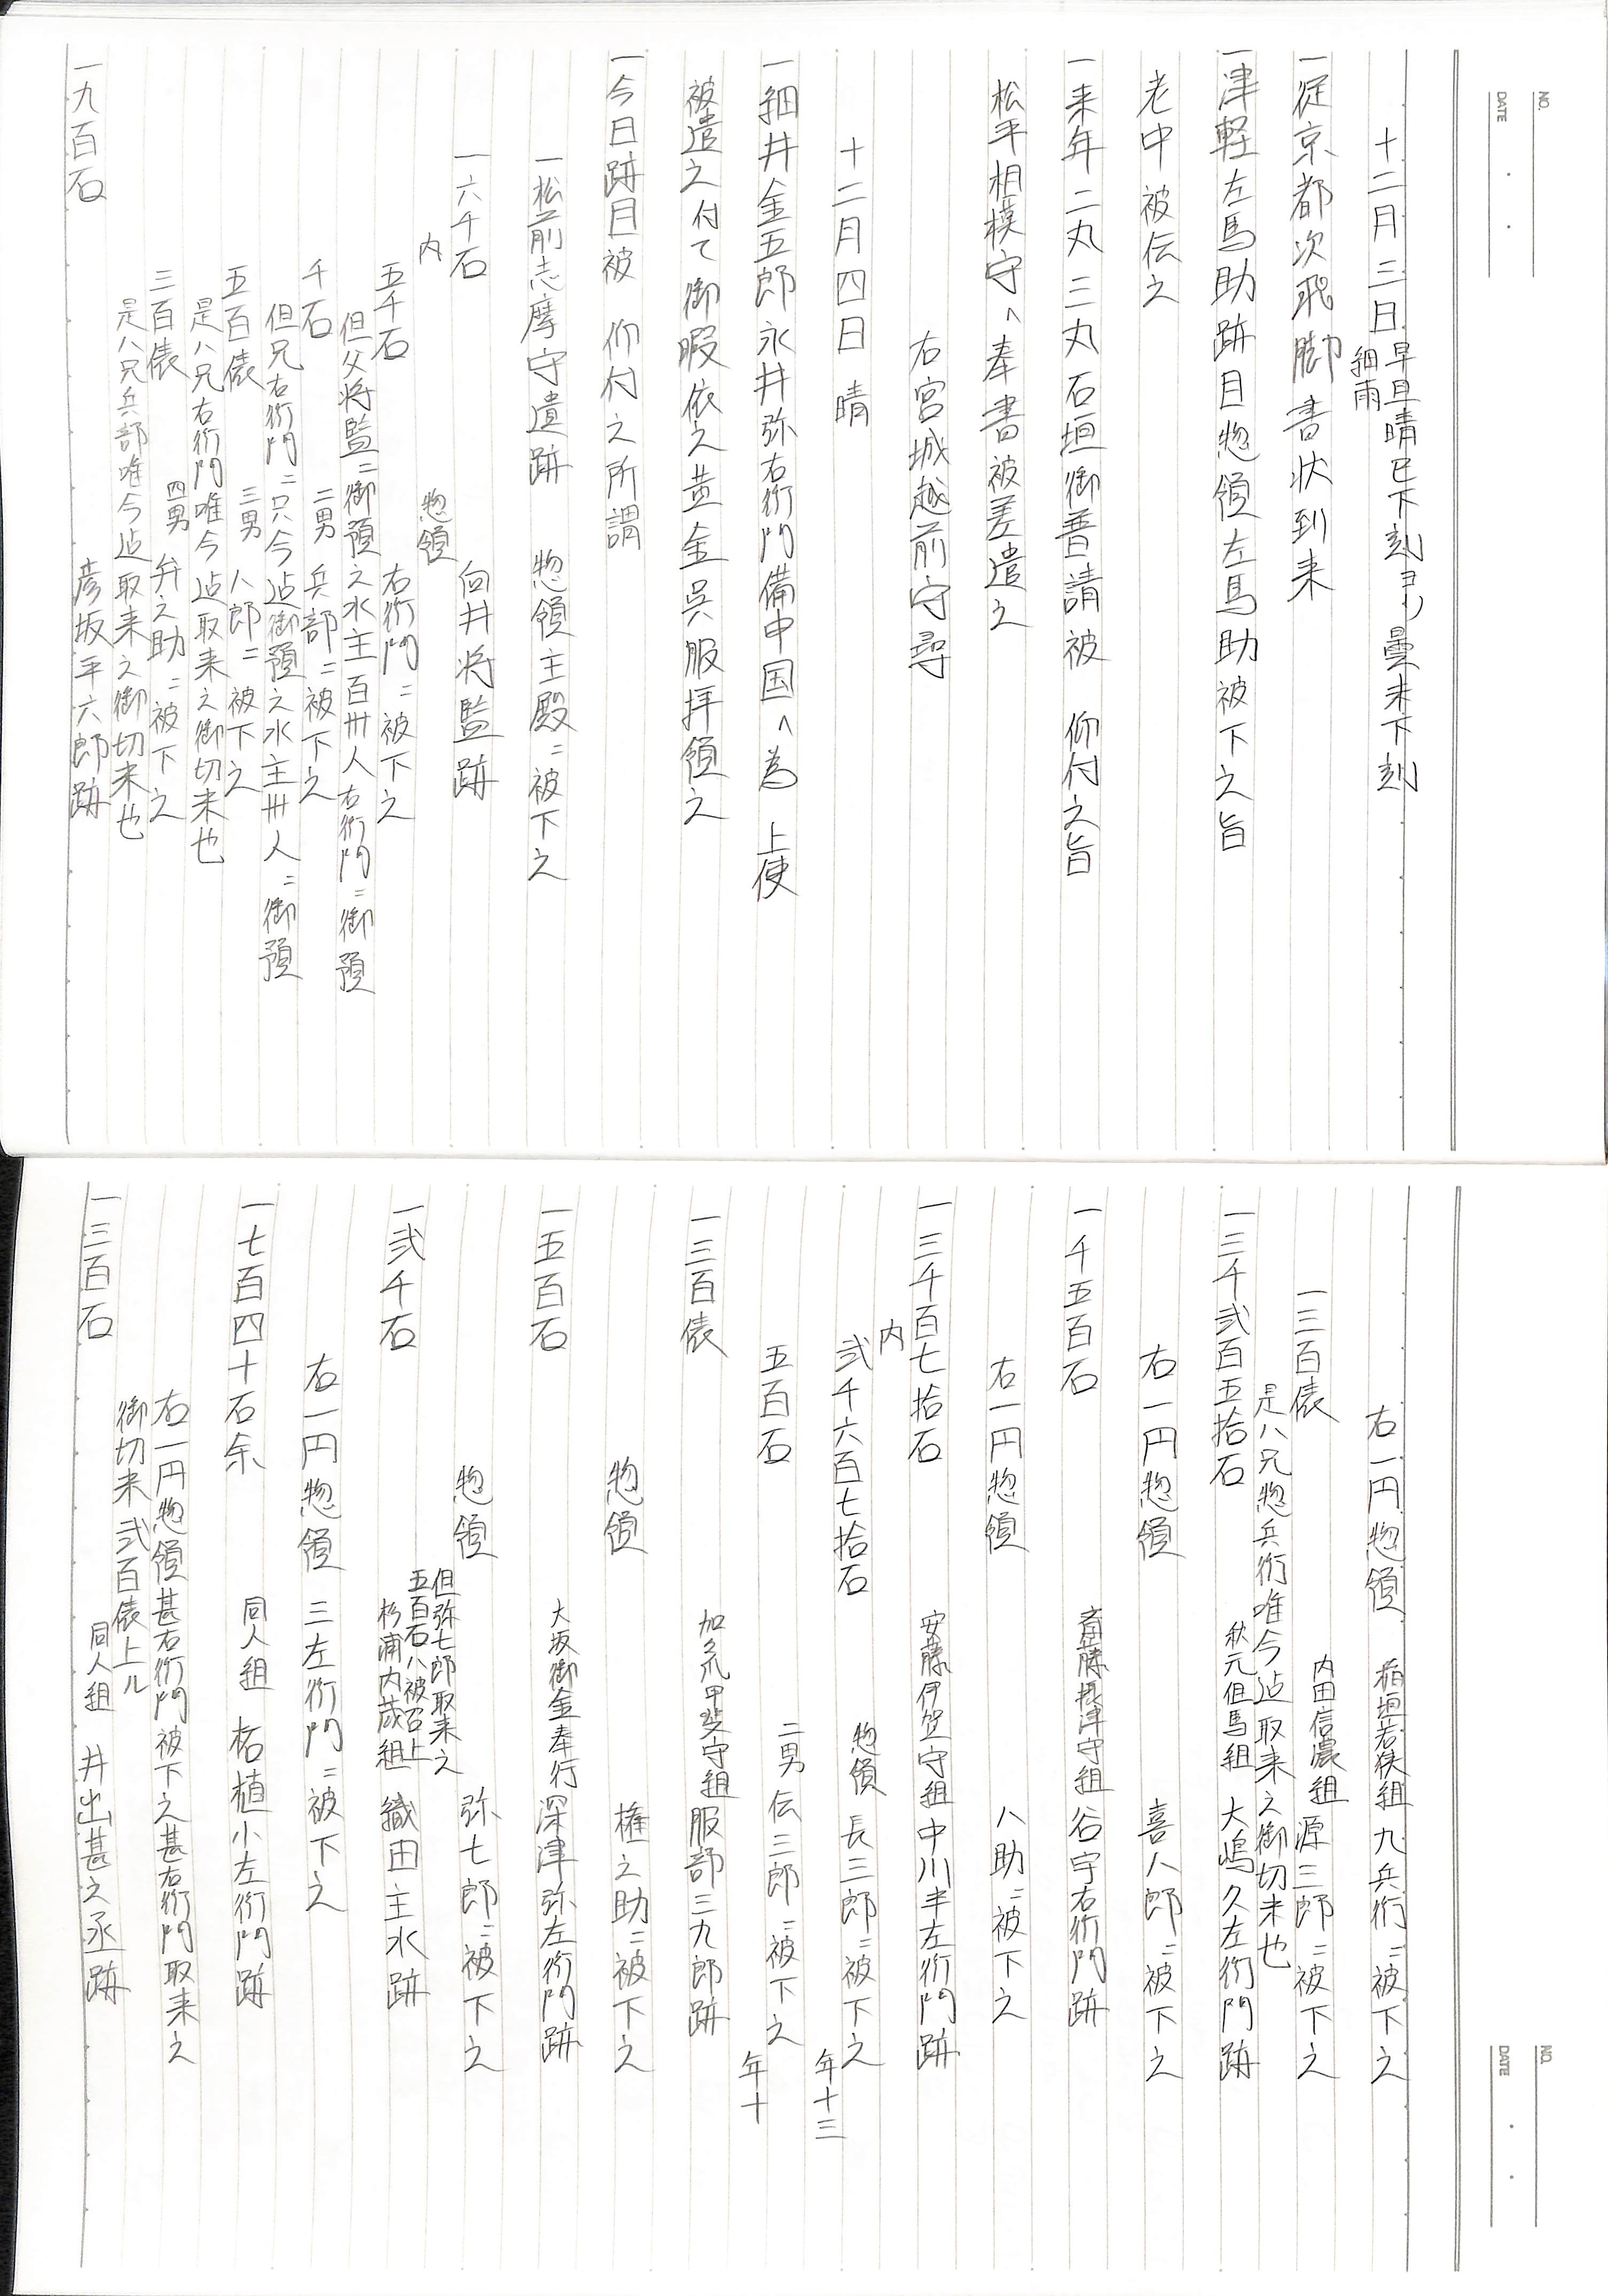 NO.
DATE
十二月三日 早旦晴巳下刻ヨリ曇未下刻
細雨
一従京都次飛脚書状到来
一津軽左馬助跡目惣領左馬助被下之旨
老中被伝之
一来年二丸三丸石垣御普請被 仰付之旨
松平相模守へ奉書被差遣之
右宮城越前守尋
十二月四日 晴
一細井金五郎永井弥右衛門備中国へ為 上使
被遣之付て御暇依之黄金呉服拝領之
一今日跡目被 仰付之所謂
一松前志摩守遺跡 惣領主殿ニ被下之
一六千石 向井将監跡
内 惣領
五千石 右衛門ニ被下之
但父将監ニ御預之水主百卅人右衛門ニ御預
千石 二男 兵部ニ被下之
但兄右衛門ニ只今迠御預之水主卅人ニ御預
五百俵 三男 八郎ニ被下之
是ハ兄右衛門唯今迠取来之御切米也
三百俵 四男 弁之助ニ被下之
是ハ兄兵部唯今迠取来之御切米也
一九百石 彦坂平六郎跡
NO.
DATE
右一円惣領 稲垣若狭組 九兵衛ニ被下之
一三百俵 内田信濃組 源三郎ニ被下之
是ハ兄惣兵衛唯今迠取来之御切米也
一三千弐百五拾石 秋元但馬組 大嶋久左衛門跡
右一円惣領 喜八郎ニ被下之
一千五百石 斎藤摂津守組 谷宇右衛門跡
右一円惣領 八助ニ被下之
一三千百七拾石 安藤伊賀守組 中川半左衛門跡
内
弐千六百七拾石 惣領 長三郎ニ被下之
年十三
五百石 二男 伝三郎ニ被下之
年十
一三百俵 加久爪甲斐守組 服部三九郎跡
惣領 権之助ニ被下之
一五百石 大坂御金奉行 深津弥左衛門跡
惣領 弥七郎ニ被下之
但弥七郎取来之
五百石ハ被召上
一弐千石 杉浦内蔵組 織田主水跡
右一円惣領 三左衛門ニ被下之
一七百四十石余 同人組 柘植小左衛門跡
右一円惣領甚右衛門被下之甚右衛門取来之
御切米弐百俵上ル
一三百石 同人組 井出甚之丞跡